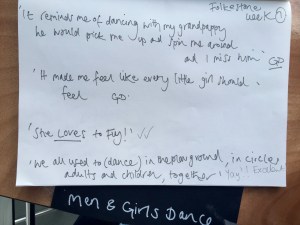 Folkestone
week 1
'It reminds me of dancing with my grandpappy
he would pick me up and spin me around
and I miss him' GD
'It made me feel like every little girl should
feel GD.
'She LOVES to Fly!' ✓✓
'We all used to (dance) in the playground, in circles,
adults and children, together' Yay!! Excellent
MEN & GIRLS DANCE